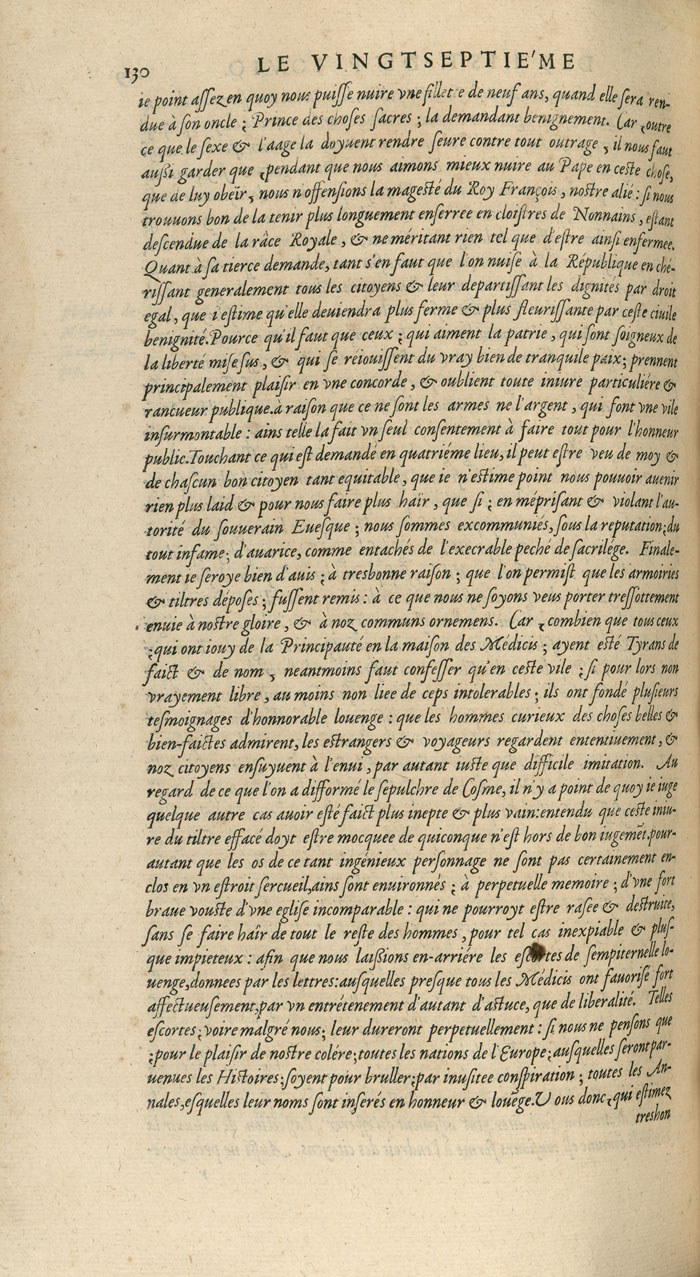 130 LE VINGTSEPTIE'ME
ie point assez en quoy nous puisse nuire vne fillete de neuf ans, quand elle sera ren-
due à son oncle ; Prince des choses sacres ; la demandant benignement. Car , outre
ce que le sexe & l'aage la doyuent rendre seure contre tout outrage , il nous faut
aussi garder que , pendant que nous aimons mieux nuire au Pape en ceste chose,
que de luy obeïr, nous n'offensions la magesté du Roy François , nostre alié : si nous
trouuons bon de la tenir plus longuement enserree en cloistres de Nonnains , estant
descendue de la râce Royale , & ne méritant rien tel que d'estre ainsi enfermee.
Quant à sa tierce demande, tant s'en faut que l'on nuise à la République en ché-
rissant generalement tous les citoyens & leur departissant les dignités par droit
egal, que i'estime qu'elle deuiendra plus ferme & plus fleurissante par ceste ciuile
benignité.Pource qu'il faut que ceux ; qui aiment la patrie , qui sont soigneux de
la liberté mise sus, & qui se reiouissent du vray bien de tranquile paix; prennent
principalement plaisir en vne concorde , & oublient toute iniure particuliére &
rancueur publique.à raison que ce ne sont les armes ne l'argent , qui font vne vile
insurmontable : ains telle la fait vn seul consentement à faire tout pour l'honneur
public.Touchant ce qui est demandé en quatriéme lieu, il peut estre veu de moy &
de chascun bon citoyen tant equitable, que ie n'estime point nous pouuoir auenir
rien plus laid & pour nous faire plus haïr , que si ; en méprisant & violant l'au-
torité du souuerain Euesque ; nous sommes excommuniés, sous la reputation; du
tout infame; d'auarice, comme entachés de l'execrable peché de sacrilége. Finale-
ment ie seroye bien d'auis ; à tresbonne raison ; que l'on permist que les armoiries
& tiltres déposes ; fussent remis : à ce que nous ne soyons veus porter tressottement
enuie à nostre gloire , & à noz communs ornemens. Car , combien que tous ceux
; qui ont iouy de la Principauté en la maison des Médicis ; ayent esté Tyrans de
faict & de nom , neantmoins faut confesser qu'en ceste vile ; si pour lors non
vrayement libre , au moins non liee de ceps intolerables ; ils ont fondé plusieurs
tesmoignages d'honnorable louenge : que les hommes curieux des choses belles &
bien-faictes admirent, les estrangers & voyageurs regardent ententiuement , &
noz citoyens ensuyuent à l'enui , par autant iuste que difficile imitation. Au
regard de ce que l'on a difformé le sepulchre de Cosme, il n'y a point de quoy ie iuge
quelque autre cas auoir esté faict plus inepte & plus vain:entendu que ceste iniu-
re du tiltre effacé doyt estre mocquee de quiconque n'est hors de bon iugemēt.pour-
autant que les os de ce tant ingénieux personnage ne sont pas certainement en-
clos en vn estroit sercueil,ains sont enuironnés ; à perpetuelle memoire ; d'vne fort
braue vouste d'vne eglise incomparable : qui ne pourroyt estre rasee & destruite,
sans se faire haïr de tout le reste des hommes , pour tel cas inexpiable & plus-
que impieteux : afin que nous laissions en-arriére les escortes de sempiternelle lo-
uenge,donnees par les lettres:ausquelles presque tous les Médicis ont fauorisé fort
affectueusement,par vn entrétenement d'autant d'astuce, que de liberalité. Telles
escortes; voire malgré nous; leur dureront perpetuellement : si nous ne pensons que
;pour le plaisir de nostre colére;toutes les nations de l'Europe;ausquelles seront par-
uenues les Histoires;soyent pour bruller;par inusitee conspiration ; toutes les An-
nales,esquelles leur noms sont inserés en honneur & louēge.Vous donc , qui estimez
treshon